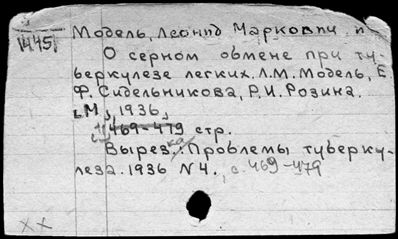 1445
Модель, Леонид Маркович. и
О серном обмене при ту-
беркулезе легких. Л.М. Модель, Е.
Ф. Сидельникова, Р.И. Розина.
[М], 1936,
469-479 стр.
Вырезка: Проблемы туберку-
леза. 1936 N4., с. 469-479
xx